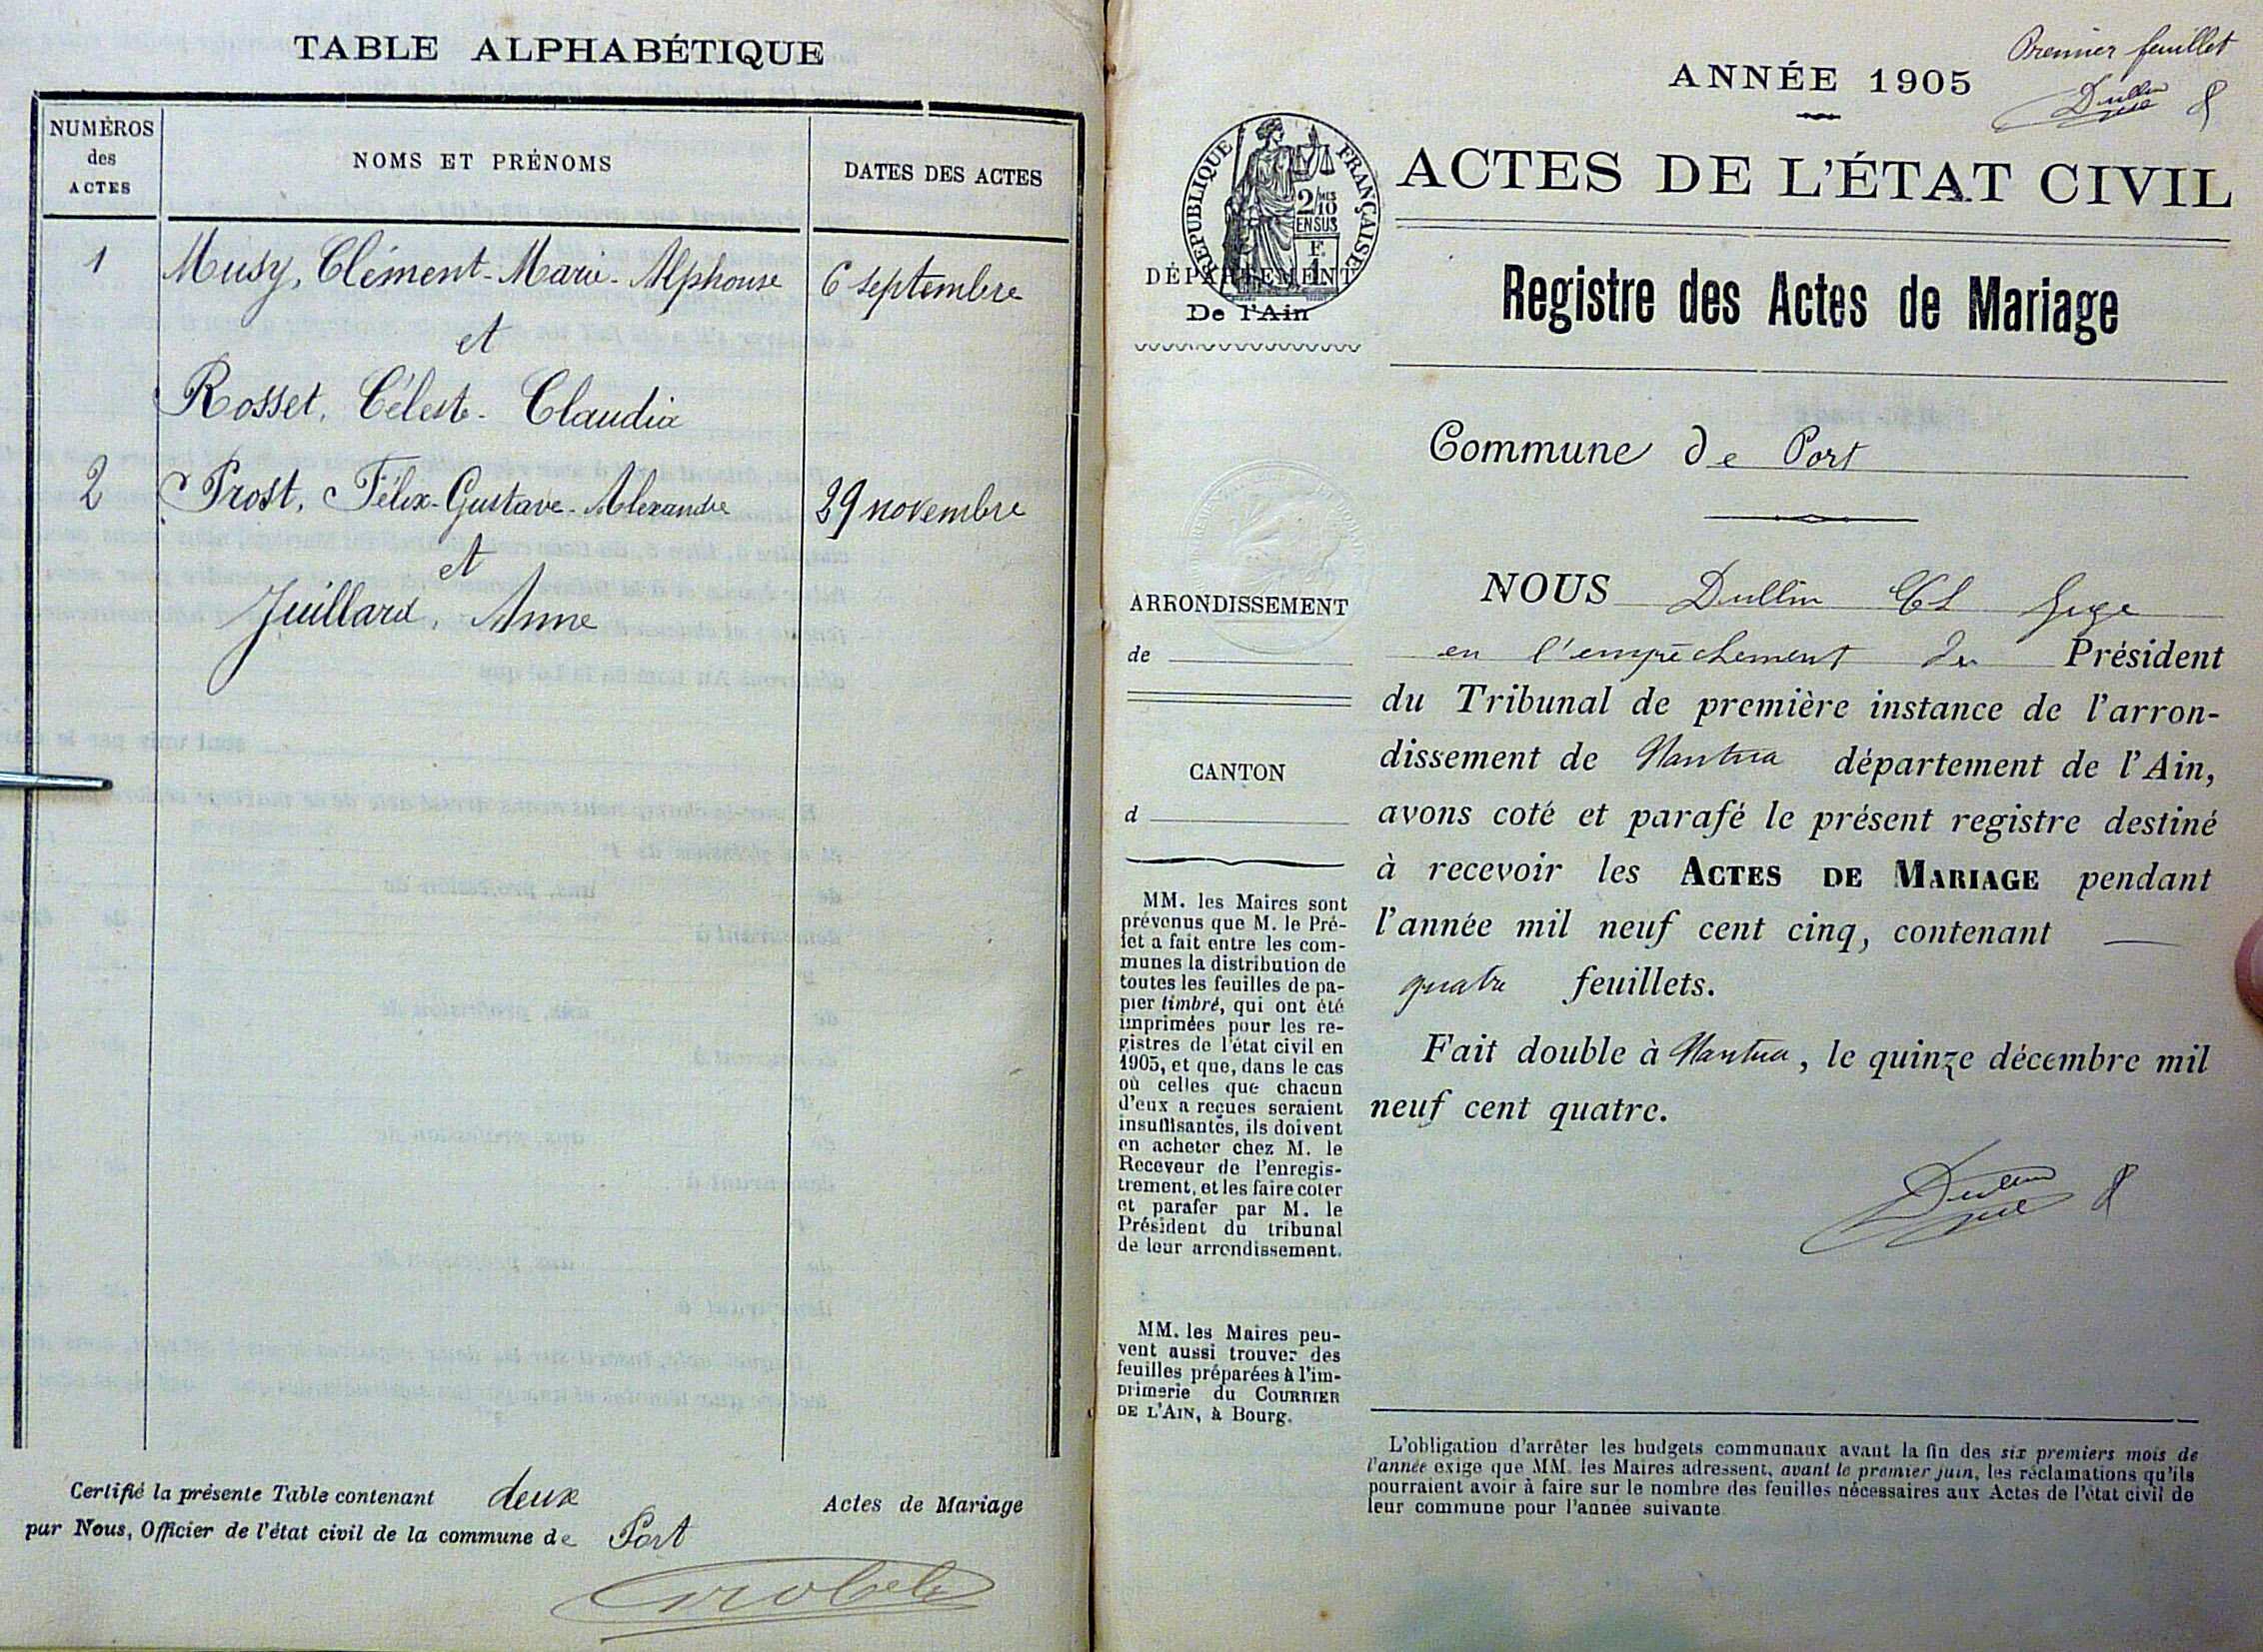 TABLE ALPHABÉTIQUE
NUMÉROS
des
ACTES
NOMS ET PRÉNOMS
DATES DES ACTES
1 Musy, Clément-Marie-Alphonse 6 septembre
et
Rosset, Céleste-Claudia
2 Prost, Félix-Gustave-Alexandre 29 novembre
et
Juillard, Anne
Certifié la présente Table contenant deux Actes de Mariage
par Nous, Officier de l'état civil de la commune de Port
Premier feuillet
Dullin
ANNÉE 1905
RÉPUBLIQUE FRANÇAISE
2/10 MES
EN SUS
F.
1
ACTES DE L'ÉTAT CIVIL
DÉPARTEMENT
De l'Ain
Registre des Actes de Mariage
Commune de Port
ARRONDISSEMENT
de
CANTON
d
MM. les Maires sont
prévenus que M. le Pré-
fet a fait entre les com-
munes la distribution de
toutes les feuilles de pa-
pier timbré, qui ont été
imprimées pour les re-
gistres de l'état civil en
1905, et que, dans le cas
où celles que chacun
d'eux a reçues seraient
insuffisantes, ils doivent
en acheter chez M. le
Receveur de l'enregis-
trement, et les faire coter
et parafer par M. le
Président du tribunal
de leur arrondissement.
MM. les Maires peu-
vent aussi trouver des
feuilles préparées à l'im-
primerie du COURRIER
DE L'AIN, à Bourg.
NOUS Dullin Juge
en l'empêchement du Président
du Tribunal de première instance de l'arron-
dissement de Nantua département de l'Ain,
avons coté et parafé le présent registre destiné
à recevoir les ACTES DE MARIAGE pendant
l'année mil neuf cent cinq, contenant
quatre feuillets.
Fait double à Nantua, le quinze décembre mil
neuf cent quatre.
Dullin
L'obligation d'arrêter les budgets communaux avant la fin des six premiers mois de
l'année exige que MM. les Maires adressent, avant le premier juin, les réclamations qu'ils
pourraient avoir à faire sur le nombre des feuilles nécessaires aux Actes de l'état civil de
leur commune pour l'année suivante